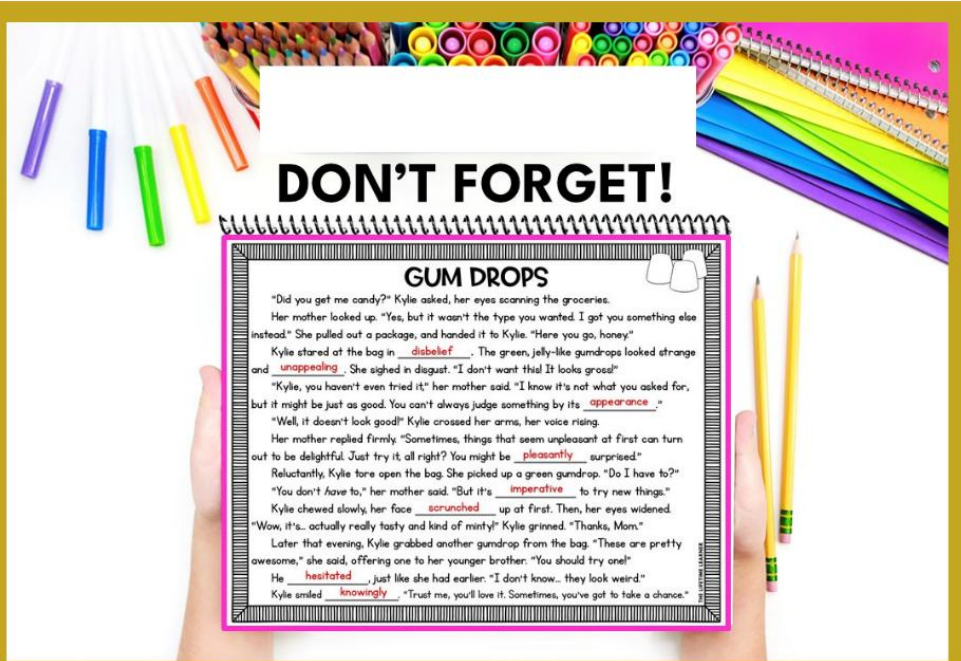 DON'T FORGET!
GUM DROPS
"Did you get me candy?" Kylie asked, her eyes scanning the groceries.
Her mother looked up. "Yes, but it wasn't the type you wanted. I got you something else
instead." She pulled out a package, and handed it to Kylie. "Here you go, honey."
Kylie stared at the bag in disbelief. The green, jelly-like gumdrops looked strange
and unappealing. She sighed in disgust. "I don't want this! It looks gross!"
"Kylie, you haven't even tried it," her mother said. "I know it's not what you asked for,
but it might be just as good. You can't always judge something by its appearance."
"Well, it doesn't look good!" Kylie crossed her arms, her voice rising.
Her mother replied firmly. "Sometimes, things that seem unpleasant at first can turn
out to be delightful. Just try it, all right? You might be pleasantly surprised."
Reluctantly, Kylie tore open the bag. She picked up a green gumdrop. "Do I have to?"
"You don't have to," her mother said. "But it's imperative to try new things."
Kylie chewed slowly, her face scrunched up at first. Then, her eyes widened.
"Wow, it's... actually really tasty and kind of minty!" Kylie grinned. "Thanks, Mom."
Later that evening, Kylie grabbed another gumdrop from the bag. "These are pretty
awesome," she said, offering one to her younger brother. "You should try one!"
He hesitated, just like she had earlier. "I don't know... they look weird."
Kylie smiled knowingly. "Trust me, you'll love it. Sometimes, you've got to take a chance."
THE LIFETIME LEARNER